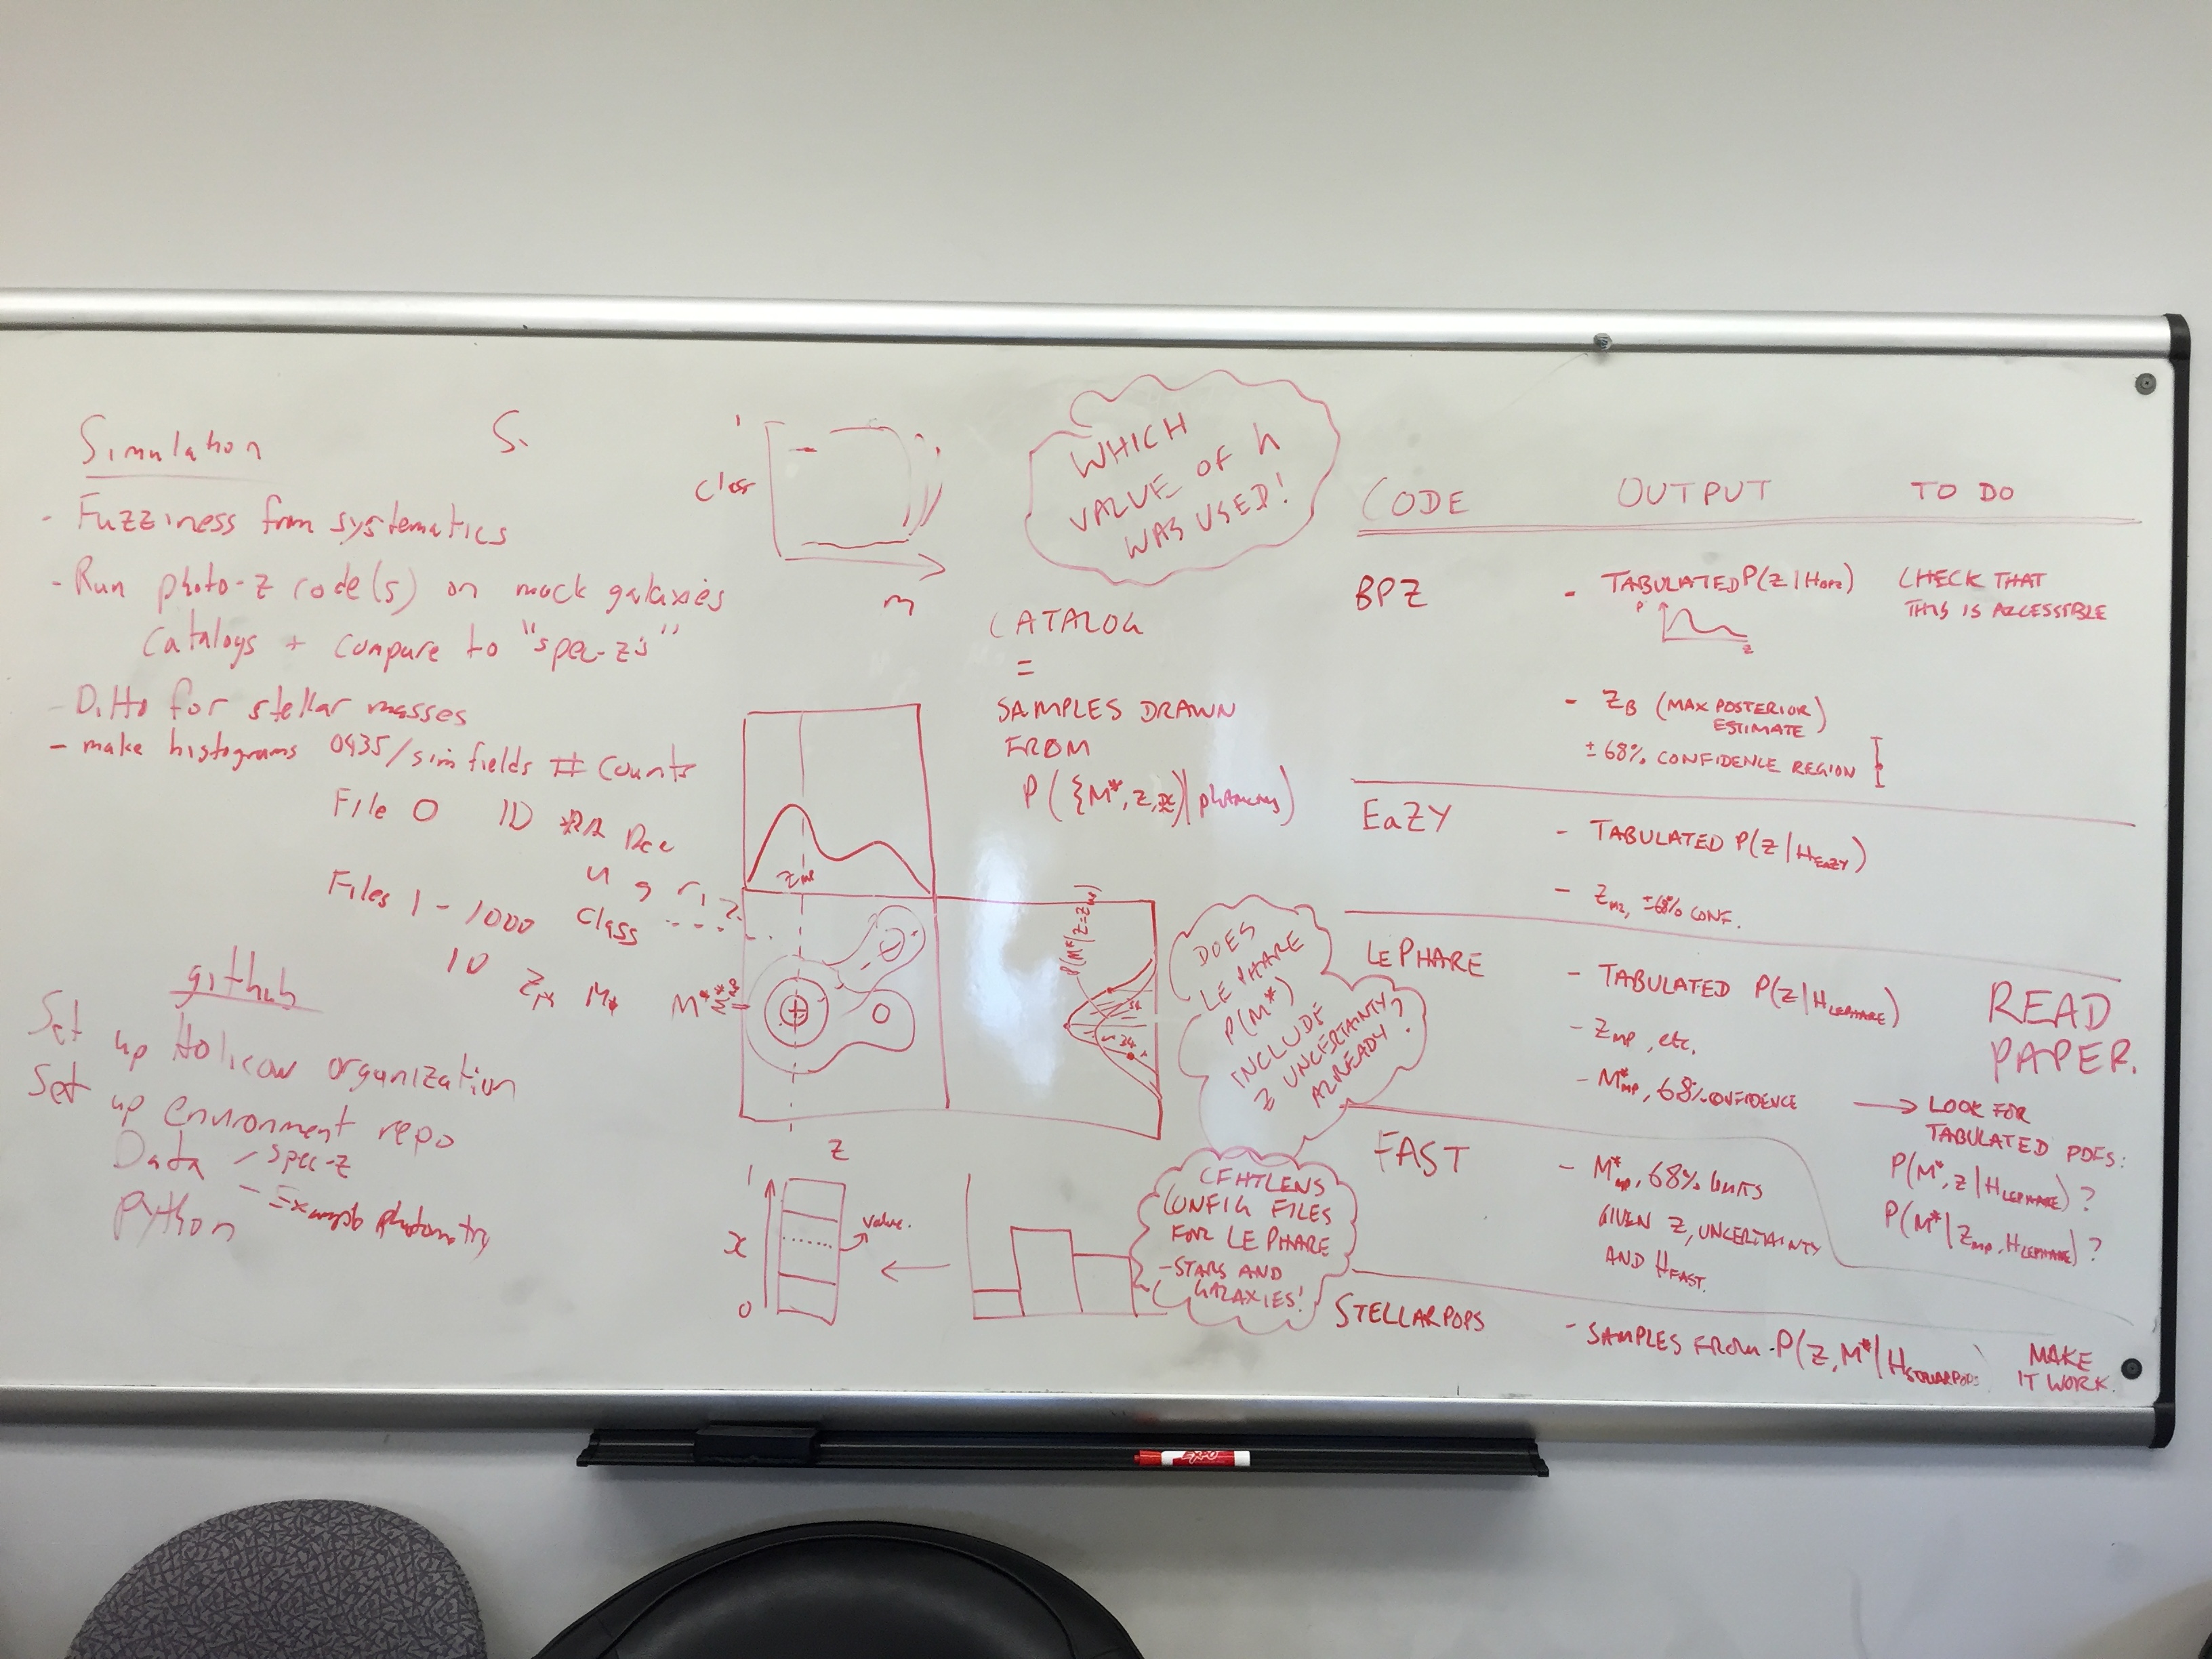 Simulation
- Fuzziness from systematics
- Run photo-z code(s) on mock galaxies
catalogs + compare to "spec-z's"
- Ditto for stellar masses
- make histograms 0435/sim fields # counts
File 0 ID RA Dec
u g r i ?
Files 1 - 1000 class - - - -
ID z M*
github
Set up Holicow organization
Set up environment repo
Data - spec-z
- Example photometry
python
S.
1
class
m
WHICH
VALUE OF h
WAS USED!
CATALOG
=
SAMPLES DRAWN
FROM
P({M*, z, x}|
z_MP
M*
z
P(M*|z=z_MP)
1
x
0
value.
DOES
LE PHARE
P(M*)
INCLUDE
z UNCERTAINTY
ALREADY?
CFHTLENS
CONFIG FILES
FOR LE PHARE
- STARS AND
GALAXIES!
CODE OUTPUT TO DO
BPZ - TABULATED P(z|H_BPZ) CHECK THAT
THIS IS ACCESSIBLE
P
z
- z_B (MAX POSTERIOR
ESTIMATE)
± 68% CONFIDENCE REGION
EaZY - TABULATED P(z|H_EAZY)
- z_M2, ±68% CONF.
LE PHARE - TABULATED P(z|H_LEPHARE) READ
PAPER.
- z_MP, etc.
- M*_MP, 68% CONFIDENCE → LOOK FOR
TABULATED PDFS:
P(M*, z|H_LEPHARE)?
P(M*|z_MP, H_LEPHARE)?
FAST - M*_MP, 68% LIMITS
GIVEN z, UNCERTAINTY
AND H_FAST.
STELLARPOPS - SAMPLES FROM P(z, M*|H_STELLARPOPS) MAKE
IT WORK.
EXPO